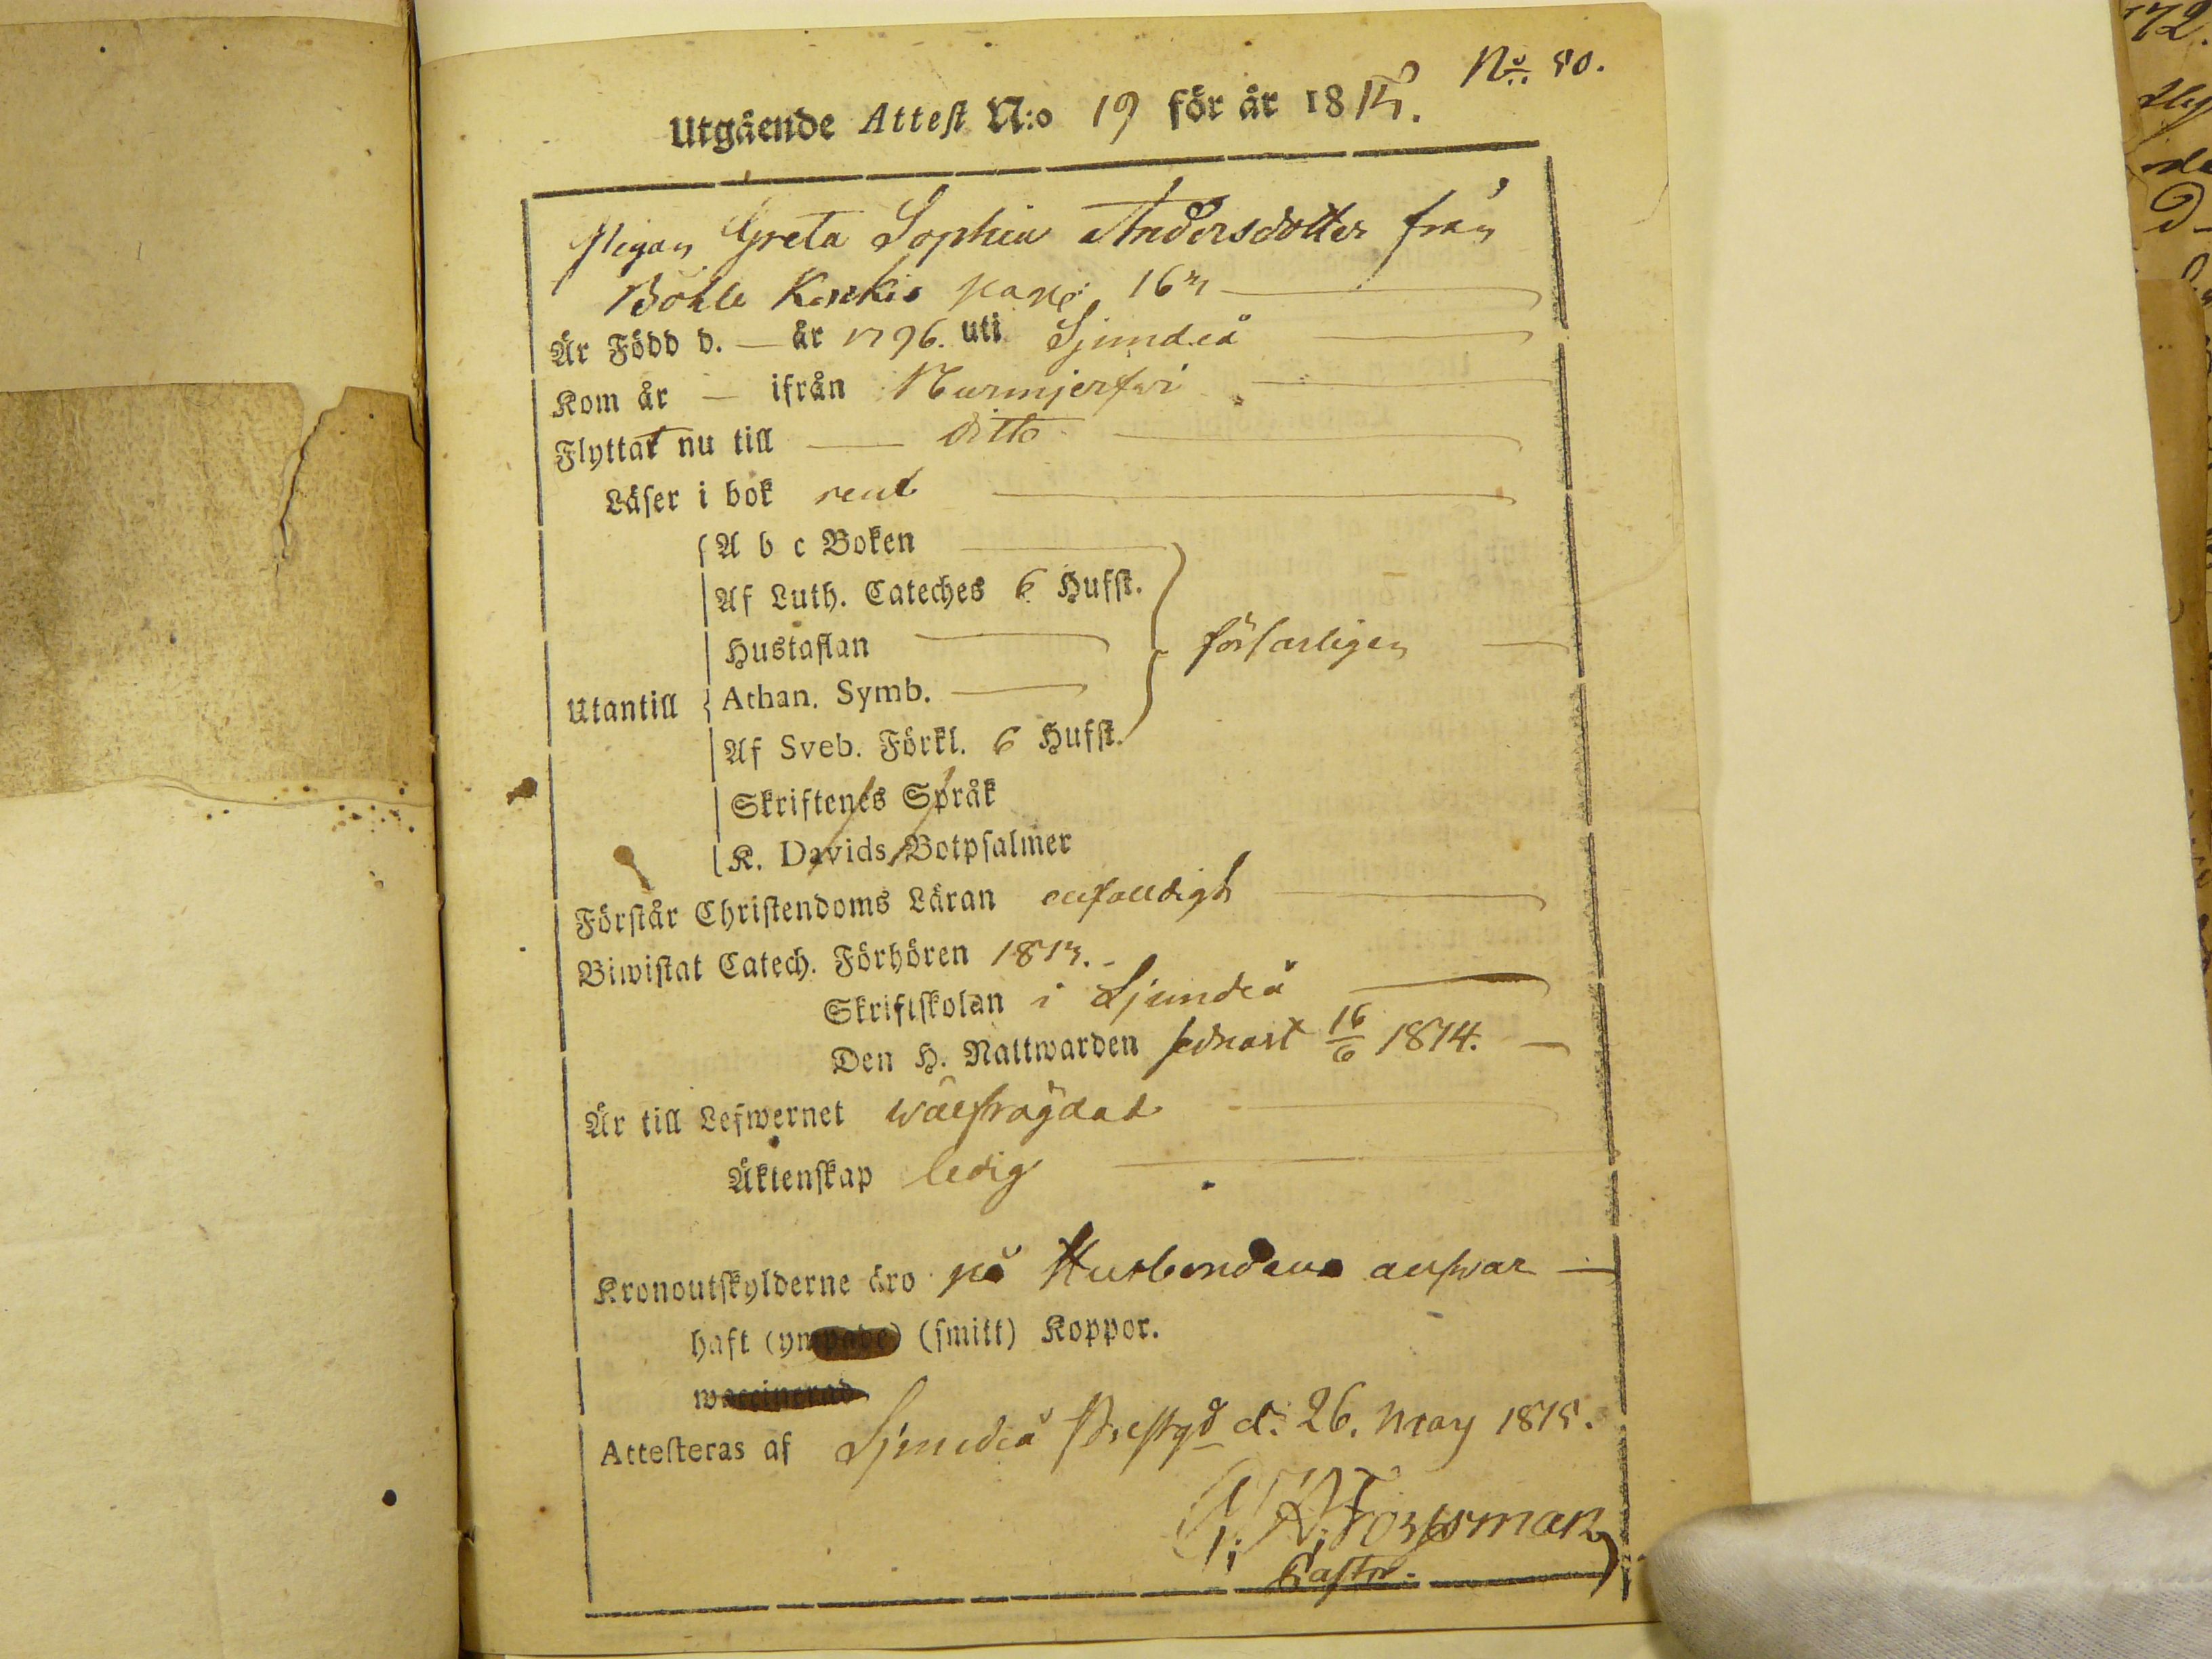 No 50.
Utgående Attest N:o 19 för år 1815.
Pigan Greta Sophia Andersdotter från
Böhle Karskis pag: 163
Är Född d. — år 1796. uti Sjundeå
Kom år — ifrån Nurmjerfwi
Flyttat nu till — ditto
Läser i bok rent
A b c Boken
Af Luth. Cateches 6 Hufst.
Hustaflan
försvarligen
Utantill
Athan. Symb.
Af Sveb. Förkl. 6 Hufst.
Skriftenes Språk
K. Davids Botpsalmer
Förstår Christendoms Läran enfaldigt
Biwistat Catech. Förhören 1813.
Skriftskolan i Sjundeå
Den H. Nattwarden sednast 16/6 1814.
Är till Lefwernet wälfrägdad
Äktenskap ledig
Kronoutskylderne äro på Husbondens answar
haft (ympade) (smitt) Koppor.
waccinerad
Attesteras af Sjundeå Prestgd d. 26. May 1815.
Forssman
Pastor.
72.